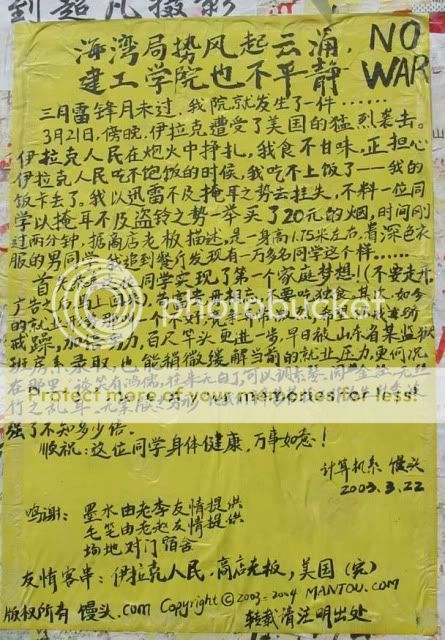 海湾局势风起云涌,
建工学院也不平静
NO
WAR
三月雷锋月未过,我院就发生了一件……
3月21日,傍晚,伊拉克遭受了美国的猛烈袭击。
伊拉克人民在炮火中挣扎,我食不甘味,正担心
伊拉克人民吃不饱饭的时候,我吃不上饭了——我的
饭卡丢了。我以迅雷不及掩耳之势去挂失,不料一位同
学以掩耳不及盗铃之势一举买了20元的烟,时间刚
过两分钟,据商店老板描述,是一身高1.75米左右,着深色衣
服的男同学,我追到餐厅发现有一万多名同学这个样……
首先 同学实现了第一个家庭梦想!(不要走开,
广告 回来)
的就业
戒躁,加倍努力,百尺竿头更进一步,早日被山东省某监狱
班房系录取,也能稍微缓解当前的就业压力,更何况
在那里,谈笑有鸿儒,往来无白丁,可以调素琴,阅金经,无丝
竹之乱耳,无案牍之劳形
强了不知多少倍。
顺祝:这位同学身体健康,万事如意!
计算机系 馒头
2003.3.22
鸣谢: 墨水由老李友情提供
毛笔由老赵友情提供
场地对门宿舍
友情客串:伊拉克人民,商店老板,美国(完)
版权所有 馒头.com Copyright © 2003-2004 MANTOU.COM
转载请注明出处
photobucket
Protect more of your memories for less!